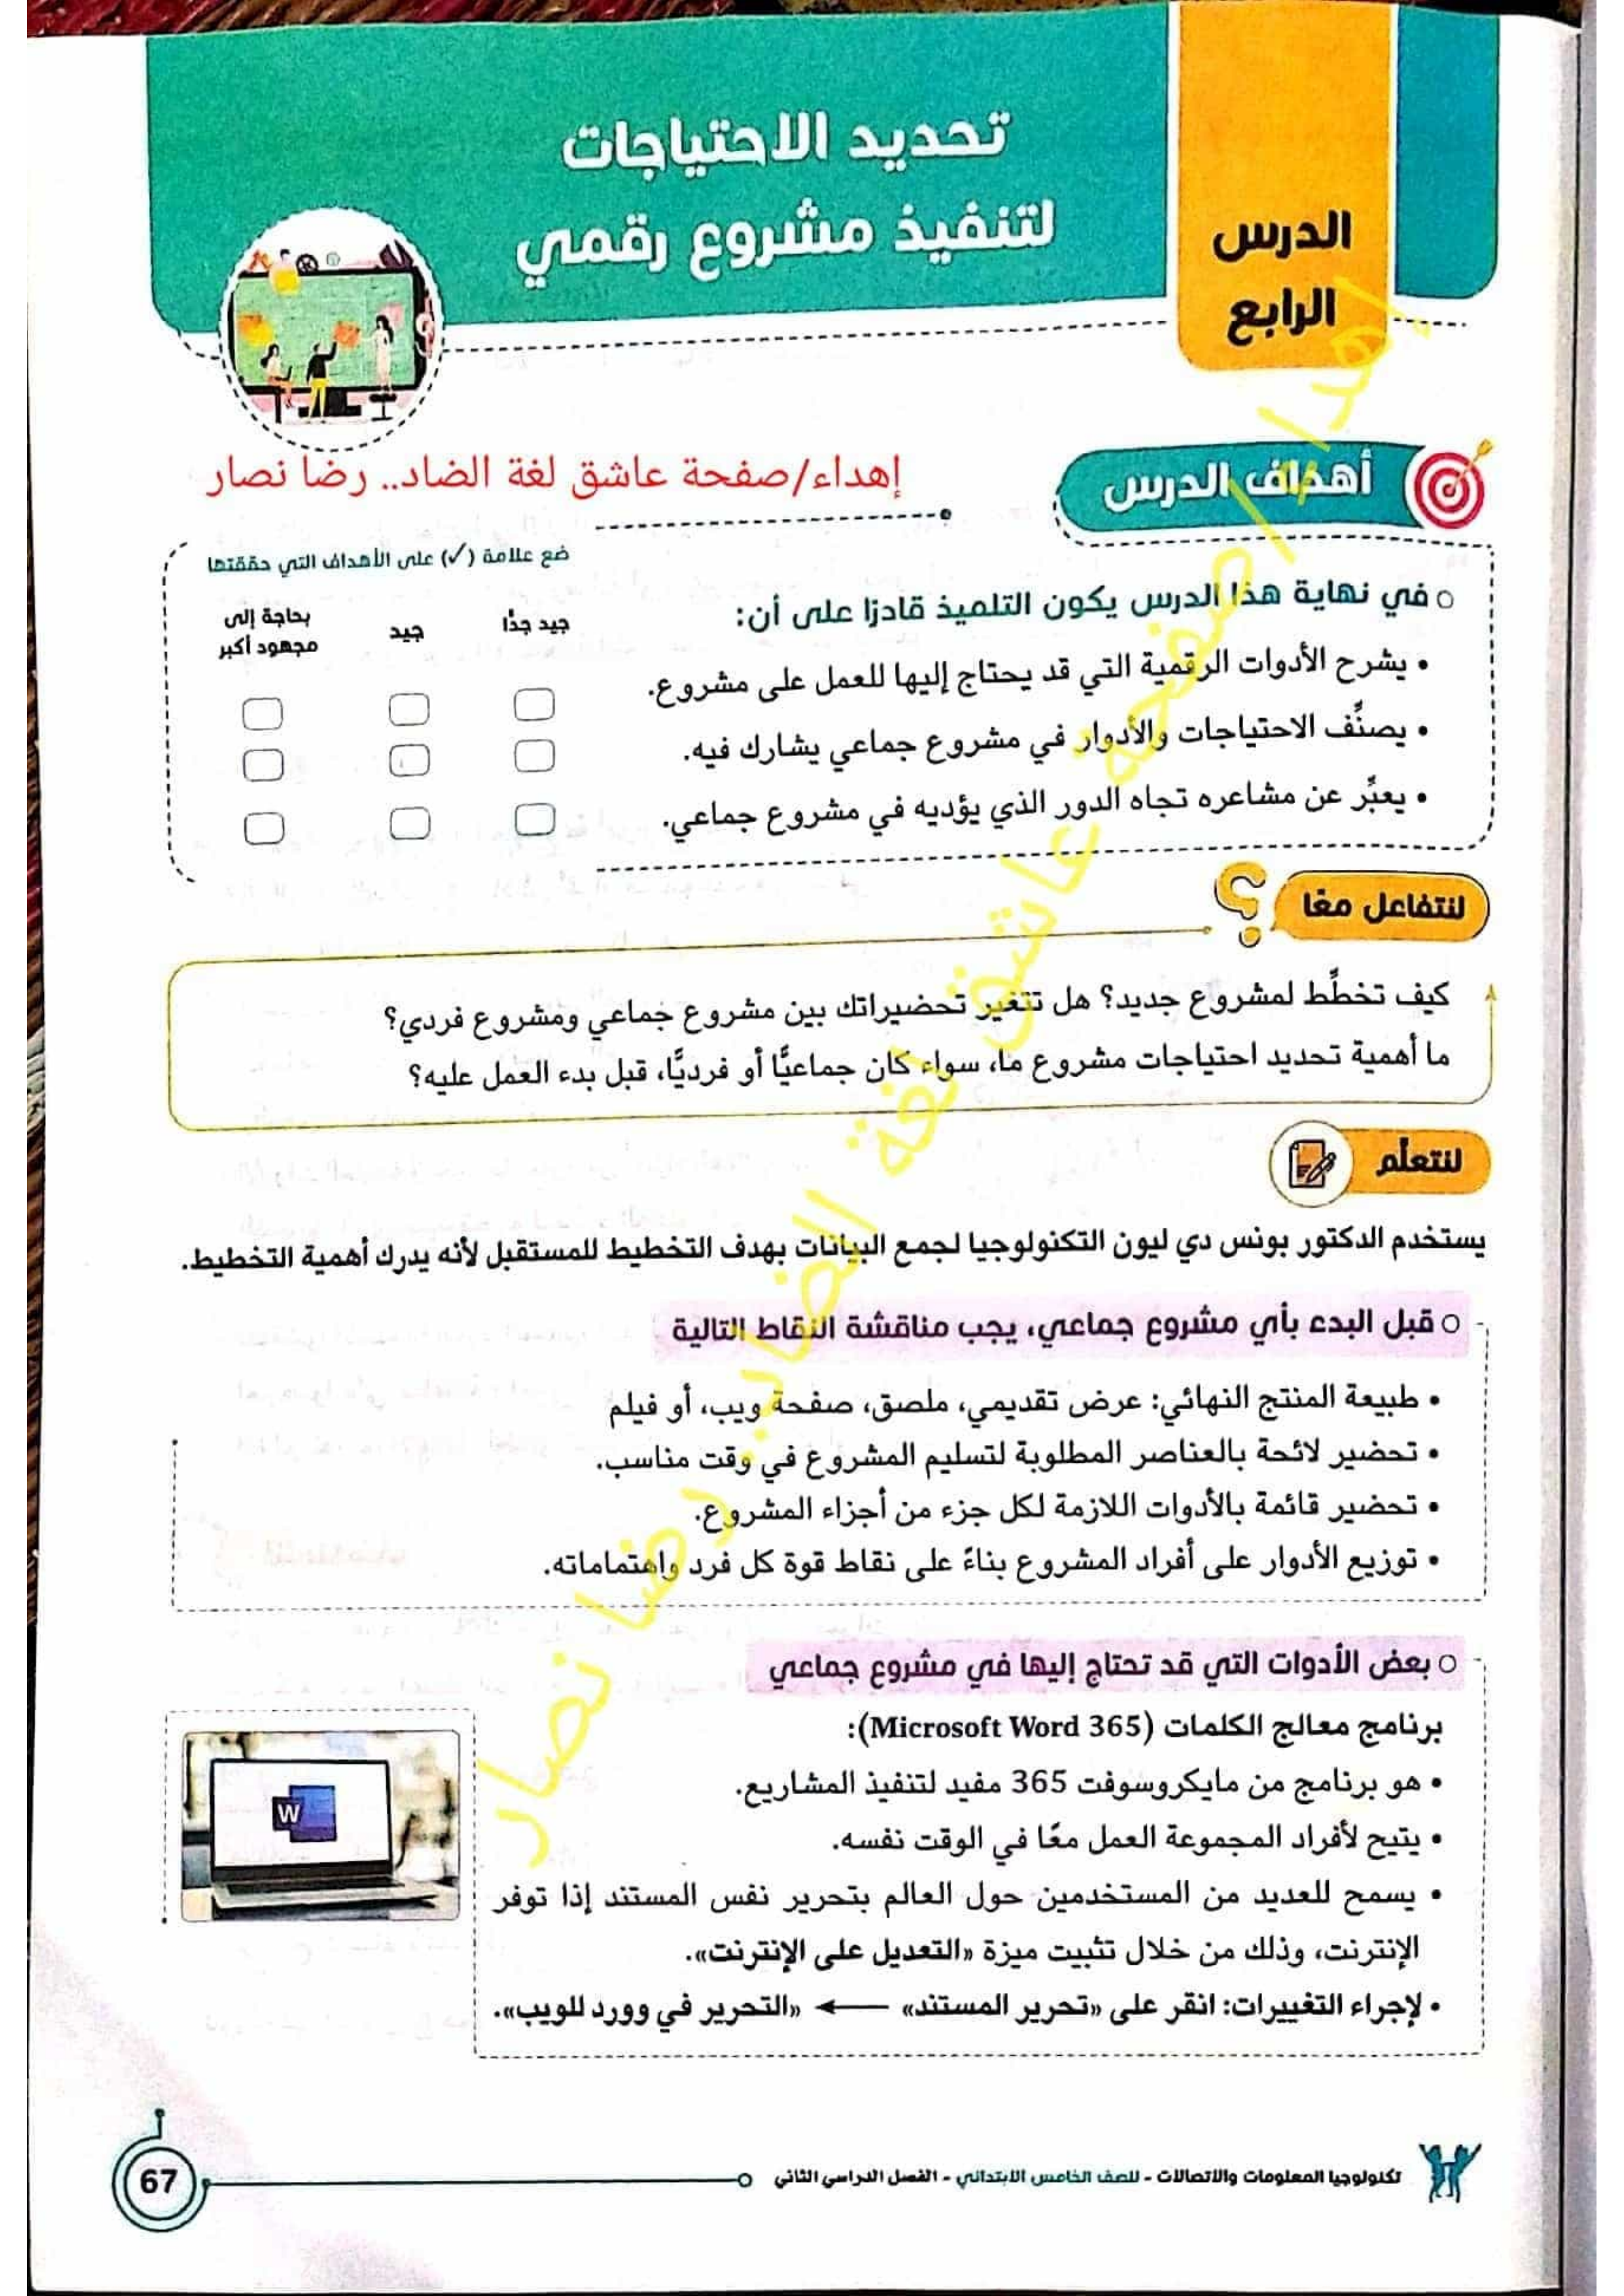 الدرس
الرابع
تحديد الاحتياجات
لتنفيذ مشروع رقمي
أهداف الدرس
إهداء/صفحة عاشق لغة الضاد.. رضا نصار
ضع علامة (✓) على الأهداف التي حققتها
في نهاية هذا الدرس يكون التلميذ قادرًا على أن:
جيد جدًّا
جيد
بحاجة إلى
مجهود أكبر
• يشرح الأدوات الرقمية التي قد يحتاج إليها للعمل على مشروع.
• يصنِّف الاحتياجات والأدوار في مشروع جماعي يشارك فيه.
• يعبِّر عن مشاعره تجاه الدور الذي يؤديه في مشروع جماعي.
لنتفاعل معًا
كيف تخطِّط لمشروع جديد؟ هل تتغير تحضيراتك بين مشروع جماعي ومشروع فردي؟
ما أهمية تحديد احتياجات مشروع ما، سواء كان جماعيًّا أو فرديًّا، قبل بدء العمل عليه؟
لنتعلَّم
يستخدم الدكتور بونس دي ليون التكنولوجيا لجمع البيانات بهدف التخطيط للمستقبل لأنه يدرك أهمية التخطيط.
قبل البدء بأي مشروع جماعي، يجب مناقشة النقاط التالية
• طبيعة المنتج النهائي: عرض تقديمي، ملصق، صفحة ويب، أو فيلم
• تحضير لائحة بالعناصر المطلوبة لتسليم المشروع في وقت مناسب.
• تحضير قائمة بالأدوات اللازمة لكل جزء من أجزاء المشروع.
• توزيع الأدوار على أفراد المشروع بناءً على نقاط قوة كل فرد واهتماماته.
بعض الأدوات التي قد تحتاج إليها في مشروع جماعي
برنامج معالج الكلمات (Microsoft Word 365):
• هو برنامج من مايكروسوفت 365 مفيد لتنفيذ المشاريع.
• يتيح لأفراد المجموعة العمل معًا في الوقت نفسه.
• يسمح للعديد من المستخدمين حول العالم بتحرير نفس المستند إذا توفر
الإنترنت، وذلك من خلال تثبيت ميزة «التعديل على الإنترنت».
• لإجراء التغييرات: انقر على «تحرير المستند» ← «التحرير في وورد للويب».
W
إهداء/صفحة عاشق لغة الضاد.. رضا نصار
تكنولوجيا المعلومات والاتصالات - للصف الخامس الابتدائي - الفصل الدراسي الثاني
67